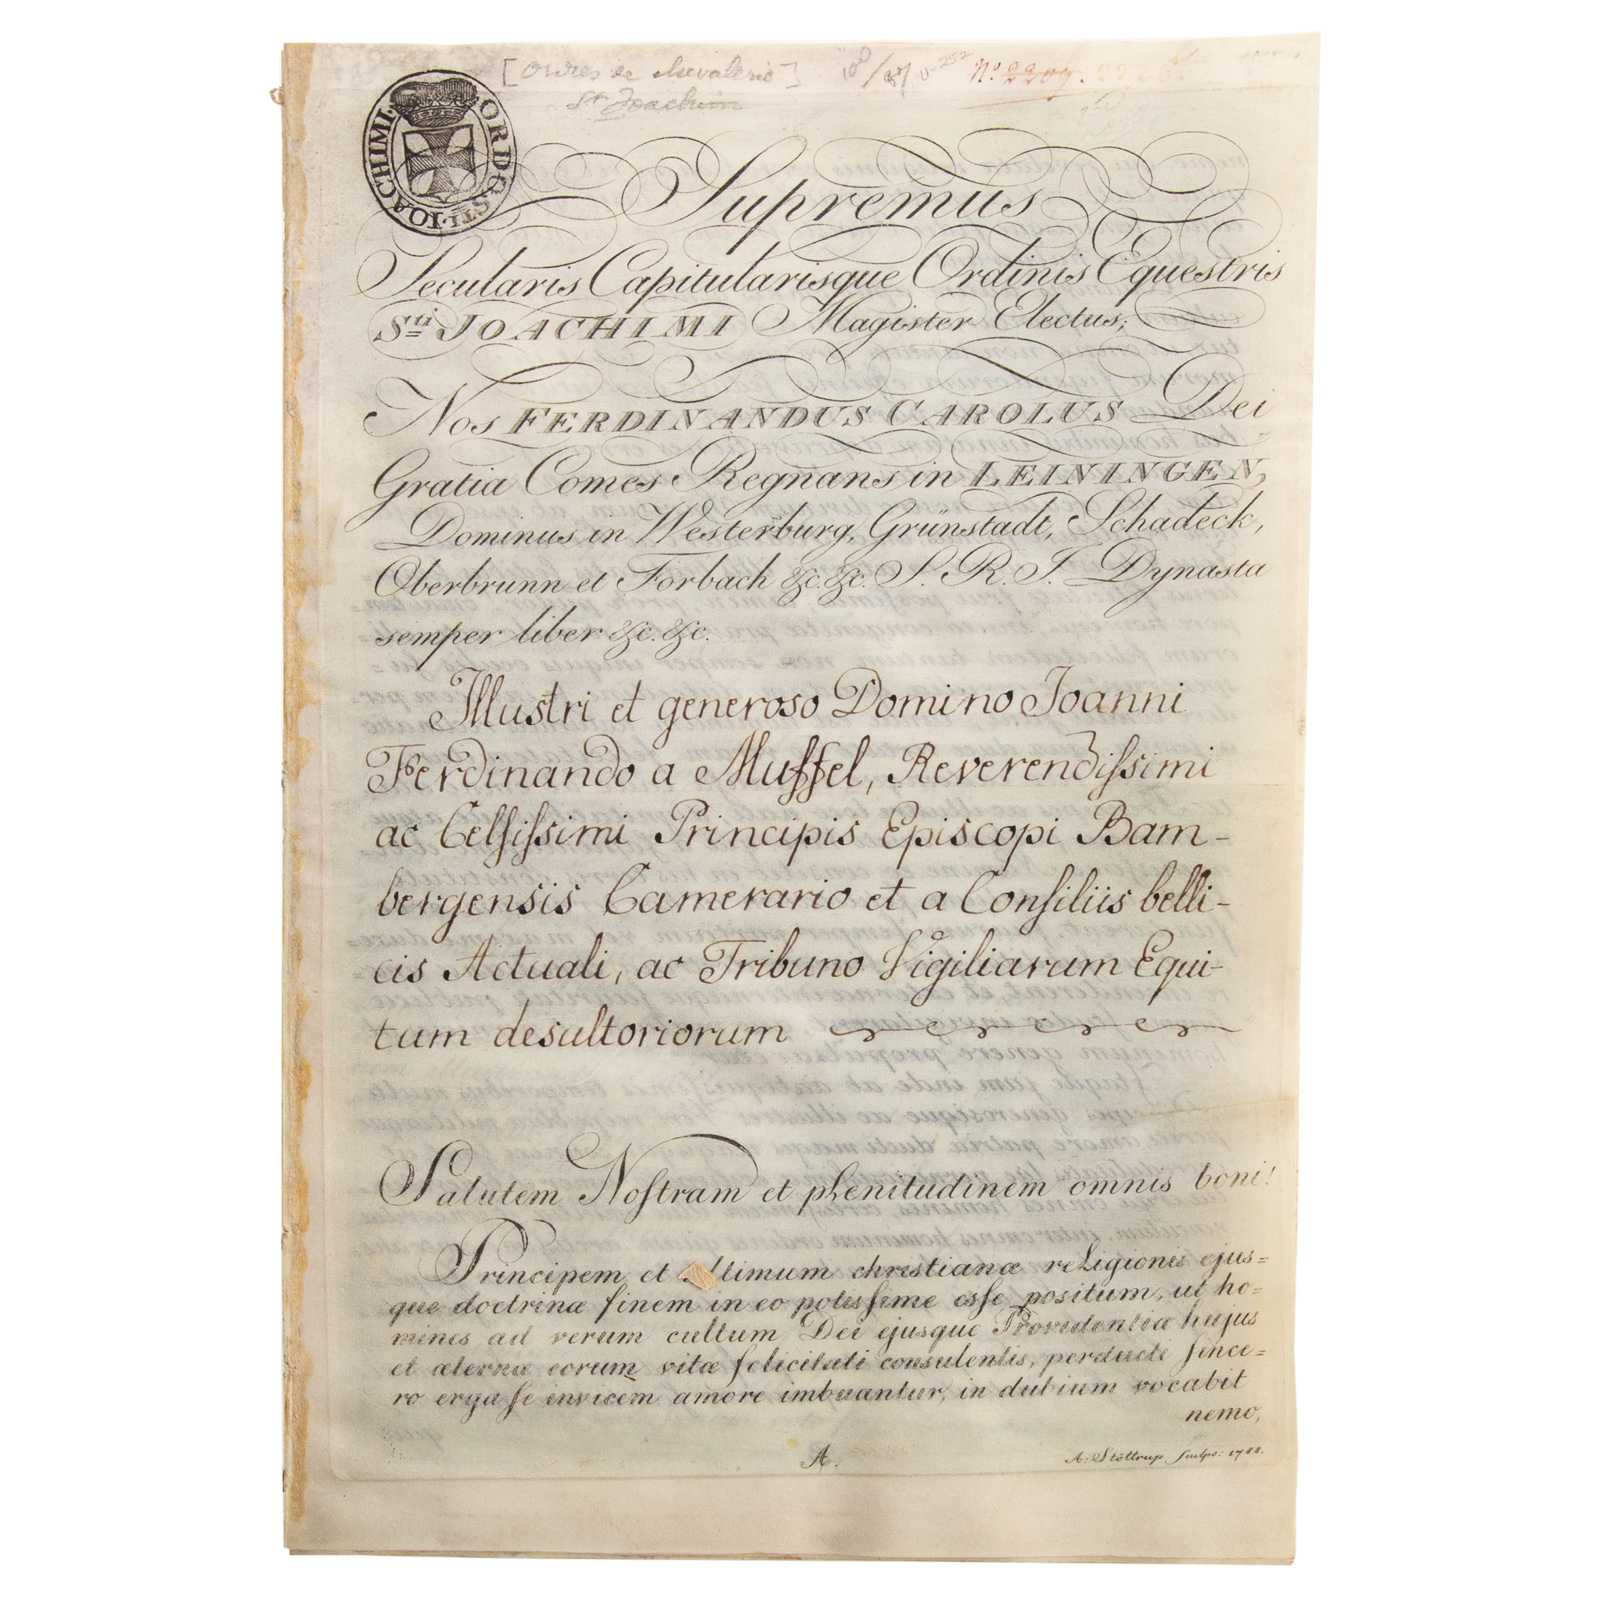 [Ordres de chevalerie]
N° 2209.
St Joachim
ORDO · STI · IOACHIMI ·
Supremus
Secularis Capitularisque Ordinis Equestris
Sti JOACHIMI Magister Electus;
Nos FERDINANDUS CAROLUS Dei
Gratia Comes Regnans in LEININGEN,
Dominus in Westerburg, Grünstadt, Schadeck,
Oberbrunn et Forbach &c. &c. S. R. I. Dynasta
semper liber &c. &c.
Illustri et generoso Domino Joanni
Ferdinando a Muffel, Reverendiſsimi
ac Celſiſsimi Principis Episcopi Bam-
bergensis Camerario et a Conſiliis belli-
cis Actuali, ac Tribuno Vigiliarum Equi-
tum desultoriorum
Salutem Noſtram et plenitudinem omnis boni!
Principem et ltimum christianæ religionis ejus=
que doctrinæ finem in eo potisſime esſe positum, ut ho=
mines ad verum cultum Dei ejusque Providentiæ hujus
et æternæ eorum vitæ felicitati consulentis, perducti ſince=
ro erga ſe invicem amore imbuantur, in dubium vocabit
nemo,
A.
A: Stöttrup ſculps: 1788.